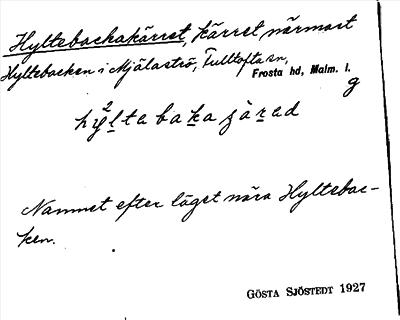 Hyltebackakärret, kärret närmast
Hyltebacken i Mjälaströ, Fulltofta sn,
Frosta hd, Malm. l.
g
Namnet efter läget nära Hyltebac-
ken.
GÖSTA SJÖSTEDT 1927